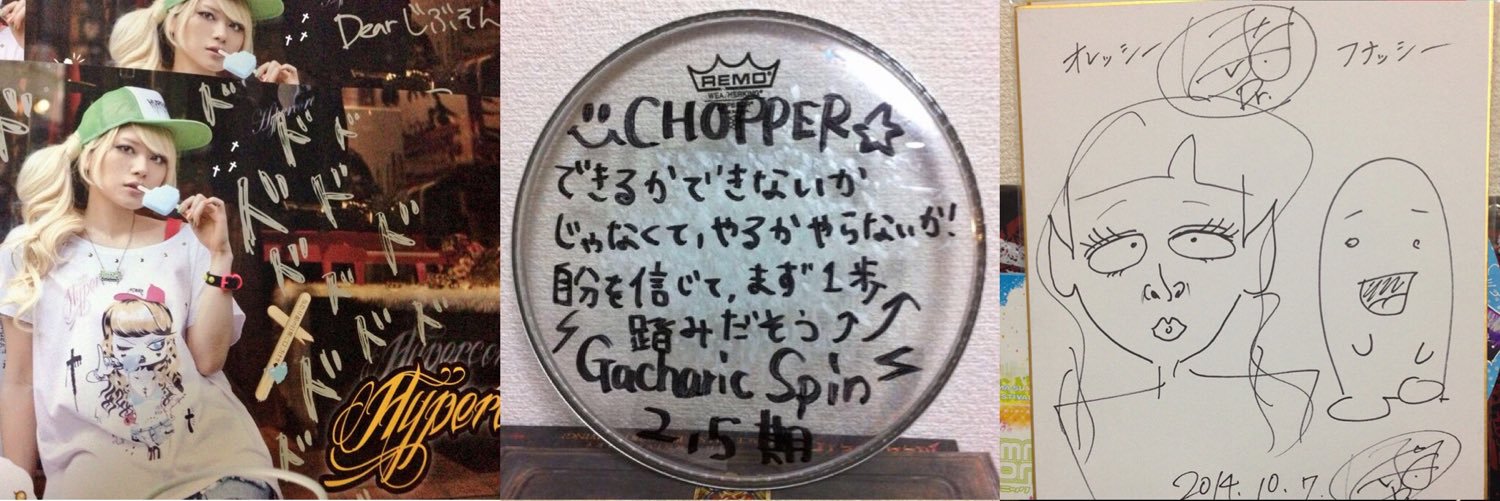 Dear じぶそん
Hypercore
ド
ド
ド
ド
ド
ド
ド
ド
ド
Hypercore
Hyper
Hyper
REMO
WEATHERKING
CHOPPER
できるかできないか
じゃなくて、やるかやらないか!
自分を信じて、まず1歩
踏みだそう
Gacharic Spin
2.5期
オレッシー
フナッシー
Dr.
2014.10.7.